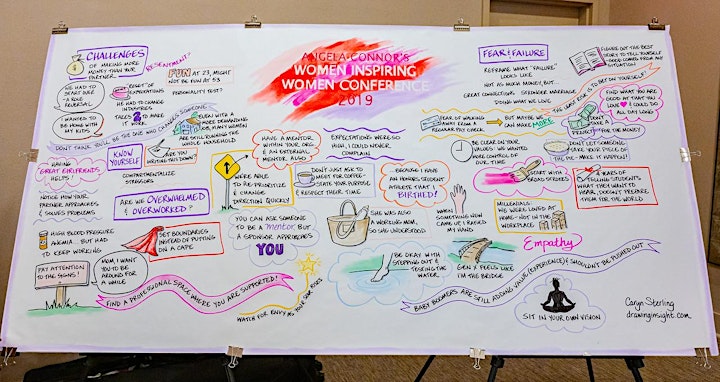 ANGELA CONNOR'S
WOMEN INSPIRING
WOMEN CONFERENCE
2019
CHALLENGES
OF MAKING MORE
MONEY THAN YOUR
PARTNER.
RESENTMENT?
WE HAD TO
START OVER
- A ROLE
REVERSAL
I WANTED TO
BE HOME WITH
MY KIDS
RESET OF
EXPECTATIONS
HE HAD TO CHANGE
INDUSTRIES
TAKES 2 TO
MAKE IT WORK
FUN AT 23, MIGHT
NOT BE FUN AT 53
PERSONALITY TEST?
EVEN WITH A
MORE DEMANDING
JOB, MANY WOMEN
ARE STILL RUNNING THE
WHOLE HOUSEHOLD
DON'T THINK YOU'LL BE THE ONE WHO CHANGES SOMEONE
HAVING
GREAT GIRLFRIENDS
HELPS!
KNOW
YOURSELF
ARE YOU
WRITING THIS DOWN?
COMPARTMENTALIZE
STRESSORS
NOTICE HOW YOUR
PARTNER APPROACHES
& SOLVES PROBLEMS
ARE WE OVERWHELMED &
OVERWORKED?
HIGH BLOOD PRESSURE
ANEMIA.. BUT HAD
TO KEEP WORKING
SET BOUNDARIES
INSTEAD OF PUTTING
ON A CAPE
PAY ATTENTION
TO THE SIGNS!
MOM, I WANT
YOU TO BE
AROUND FOR
A WHILE
FIND A PROFESSIONAL SPACE WHERE YOU ARE SUPPORTED!
WE'RE ABLE
TO RE-PRIORITIZE
& CHANGE
DIRECTION QUICKLY
HAVE A MENTOR
WITHIN YOUR ORG
& AN EXTERNAL
MENTOR ALSO
EXPECTATIONS WERE SO
HIGH, I COULD NEVER
COMPLAIN
DON'T JUST ASK TO
MEET FOR COFFEE-
STATE YOUR PURPOSE
& RESPECT THEIR TIME
BECAUSE I WAS
AN HONORS STUDENT
ATHLETE THAT I
BIRTHED!
YOU CAN ASK SOMEONE
TO BE A mentor BUT
A SPONSOR APPROACHES
YOU
SHE WAS ALSO
A WORKING MOM,
SO SHE UNDERSTOOD
WHEN
SOMETHING NEW
CAME UP I RAISED
MY HAND
WATCH FOR ENVY AS YOUR STAR RISES
BE OKAY WITH
STEPPING OUT &
TESTING THE
WATER
GEN X FEELS LIKE
I'M THE BRIDGE
FEAR & FAILURE
REFRAME WHAT "FAILURE"
LOOKS LIKE
NOT AS MUCH MONEY BUT...
GREAT CONNECTIONS, STRONGER MARRIAGE
DOING WHAT WE LOVE
FIGURE OUT THE BEST
STORY TO TELL YOURSELF
- GOOD COMES FROM ANY
SITUATION!
FEAR OF WALKING
AWAY FROM A
REGULAR PAY CHECK
BUT MAYBE WE
CAN MAKE MORE
FIND WHAT YOU ARE
GOOD AT THAT YOU
LOVE & COULD DO
ALL DAY LONG!
DON'T
TAKE A
PROJECT FOR THE MONEY
BE CLEAR ON YOUR
VALUES: WE WANTED
MORE CONTROL OF OUR
TIME
DON'T LET SOMEONE
TAKE YOUR PIECE OF
THE PIE - MAKE IT HAPPEN!
START WITH
BROAD STROKES
4 YEARS OF
TELLING STUDENTS
WHAT THEY WANT TO
HEAR, DOESN'T PREPARE
THEM FOR THE WORLD.
MILLENNIALS:
WE WERE LOVED AT
HOME - NOT IN THE
WORKPLACE
Empathy
BABY BOOMERS ARE STILL ADDING VALUE (EXPERIENCE) & SHOULDN'T BE PUSHED OUT
SIT IN YOUR OWN VISION
Caryn Sterling
drawinginsight.com